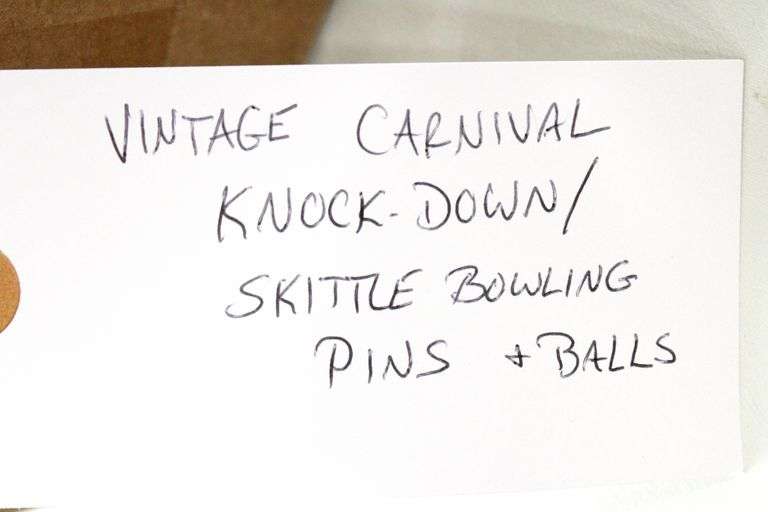 VINTAGE CARNIVAL
KNOCK-DOWN/
SKITTLE BOWLING
PINS + BALLS